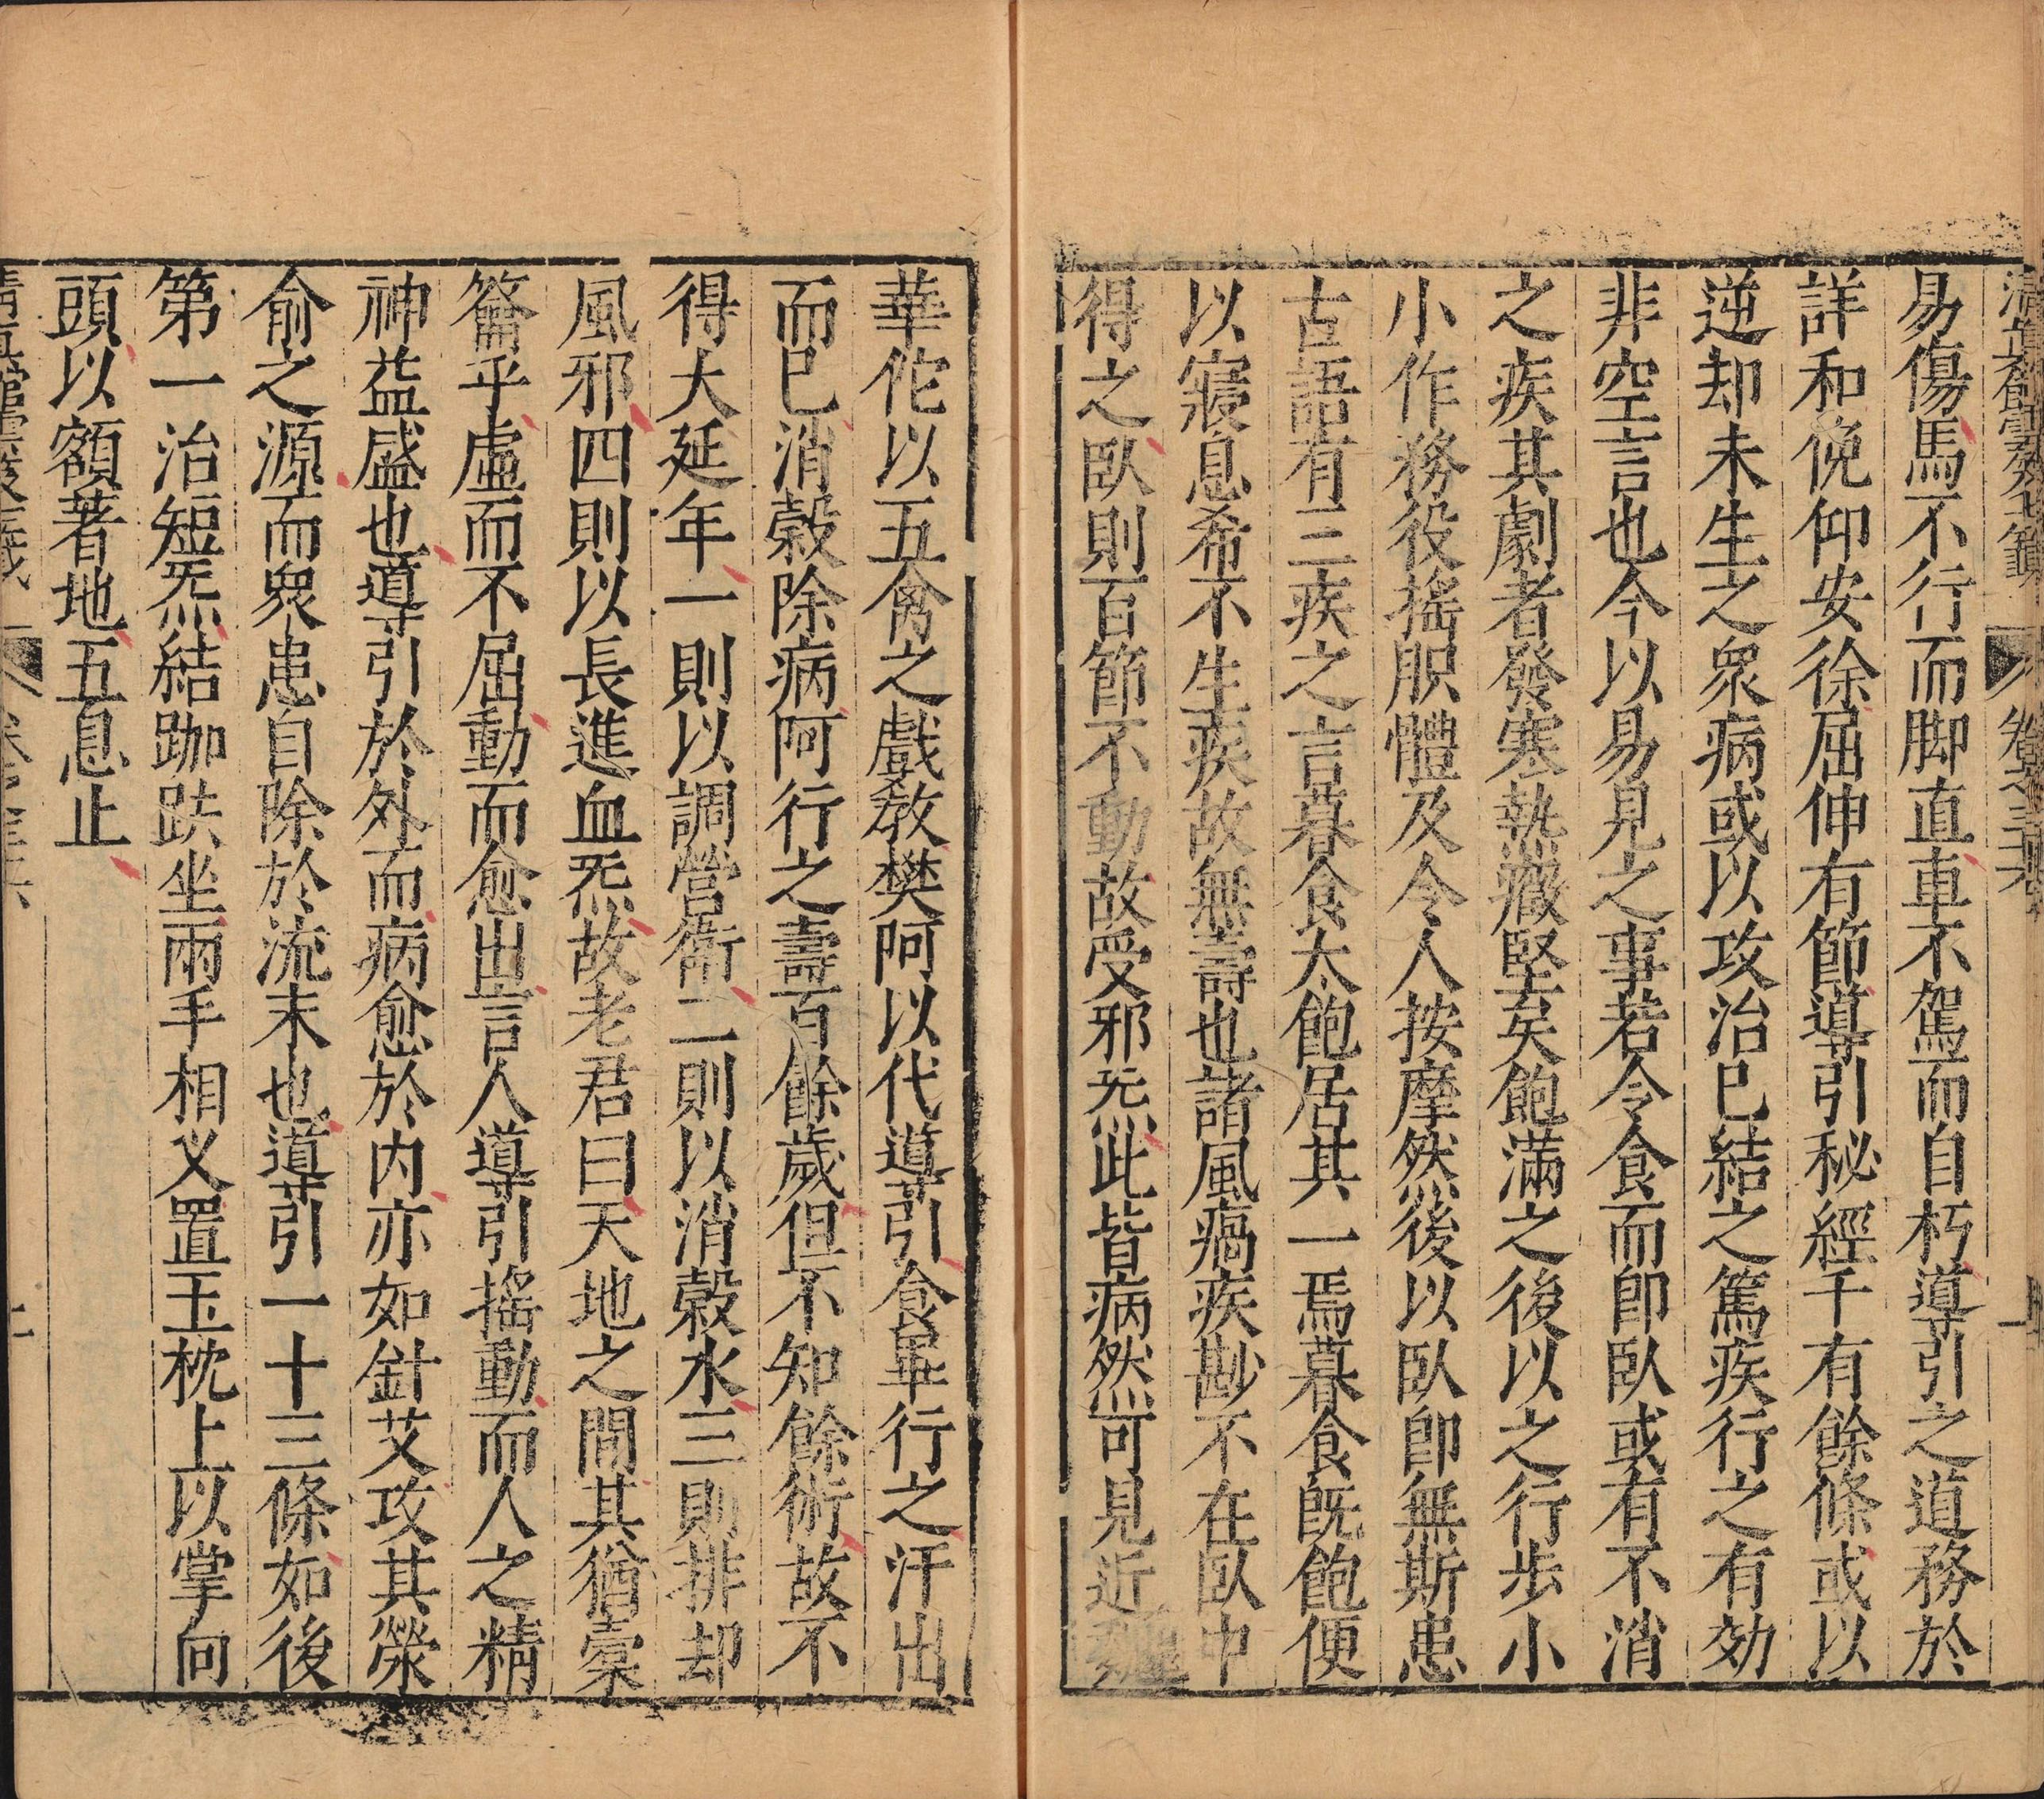 易傷馬不行而脚直車不駕而自朽導引之道務於
詳和俛仰安徐屈伸有節導引秘經千有餘條或以
逆却未生之衆病或以攻治已結之篤疾行之有効
非空言也今以易見之事若令食而卽臥或有不消
之疾其劇者發寒熱癥堅矣飽滿之後以之行步小
小作務役搖肢體及令人按摩然後以臥卽無斯患
古語有三疾之言暮食太飽居其一焉暮食既飽便
以寢息希不生疾故無壽也諸風癘疾尠不在臥中
得之臥則百節不動故受邪炁此皆病然可見近
華佗以五禽之戲教樊阿以代導引食畢行之汗出
而已消穀除病阿行之壽百餘歲但不知餘術故不
得大延年一則以調營衛二則以消穀水三則排却
風邪四則以長進血炁故老君曰天地之間其猶橐
籥乎虛而不屈動而愈出言人導引搖動而人之精
神益盛也導引於外而病愈於内亦如針艾攻其滎
俞之源而衆患自除於流末也導引一十三條如後
第一治短炁結跏趺坐兩手相叉置玉枕上以掌向
頭以額著地五息止